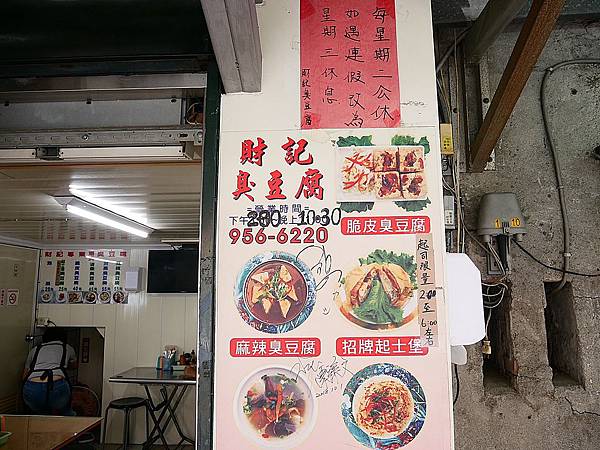 每星期二公休
如遇連假改為
星期三休息
財記臭豆腐
財記
臭豆腐
=營業時間=
下午 2:00 晚上 10:30
956-6220
脆皮臭豆腐
起司限量
2:00
至
6:00
左右
麻辣臭豆腐
招牌起士堡
財記專業臭豆腐